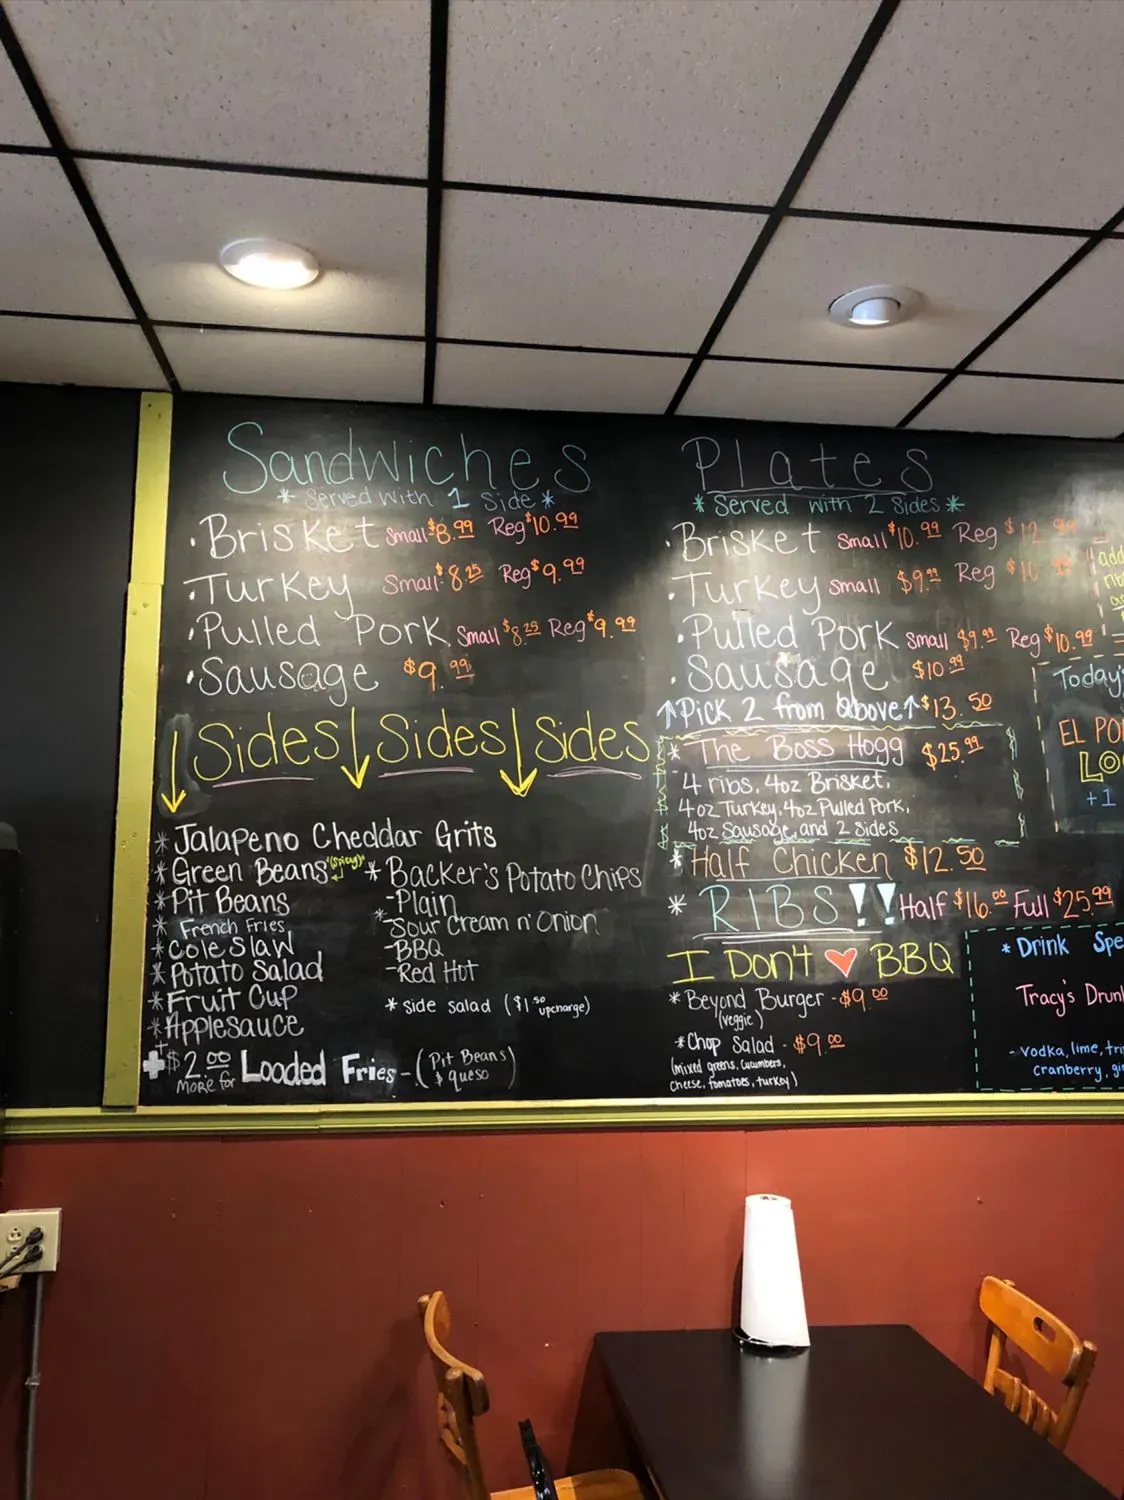 Sandwiches
* Served with 1 Side *
• Brisket Small $8.99 Reg $10.99
• Turkey Small $8.25 Reg $9.99
• Pulled Pork Small $8.25 Reg $9.99
• Sausage $9.99
Sides Sides Sides
* Jalapeno Cheddar Grits
* Green Beans "(Spicy)"
* Pit Beans
* French Fries
* Cole Slaw
* Potato Salad
* Fruit Cup
* Applesauce
* Backer's Potato Chips
- Plain
- Sour Cream n' Onion
- BBQ
- Red Hot
* Side salad ($1.50 upcharge)
+ $2.00 More for Loaded Fries - (Pit Beans
$ queso)
Plates
* Served with 2 Sides *
• Brisket Small $10.99 Reg $12.99
• Turkey Small $9.99 Reg $10.99
• Pulled Pork Small $9.99 Reg $10.99
• Sausage $10.99
↑Pick 2 from above↑ $13.50
* The Boss Hogg $25.99
4 ribs, 4oz Brisket,
4oz Turkey, 4oz Pulled Pork,
4oz Sausage, and 2 Sides
* Half Chicken $12.50
* RIBS!! Half $16.00 Full $25.99
I Don't ♥ BBQ
* Beyond Burger - $9.00
(veggie)
* Chop Salad - $9.00
(mixed greens, cucumbers,
cheese, tomatoes, turkey)
add
Today's
EL PO
LO
+1
* Drink Spe
Tracy's Drun
- Vodka, lime, tri
cranberry, gi